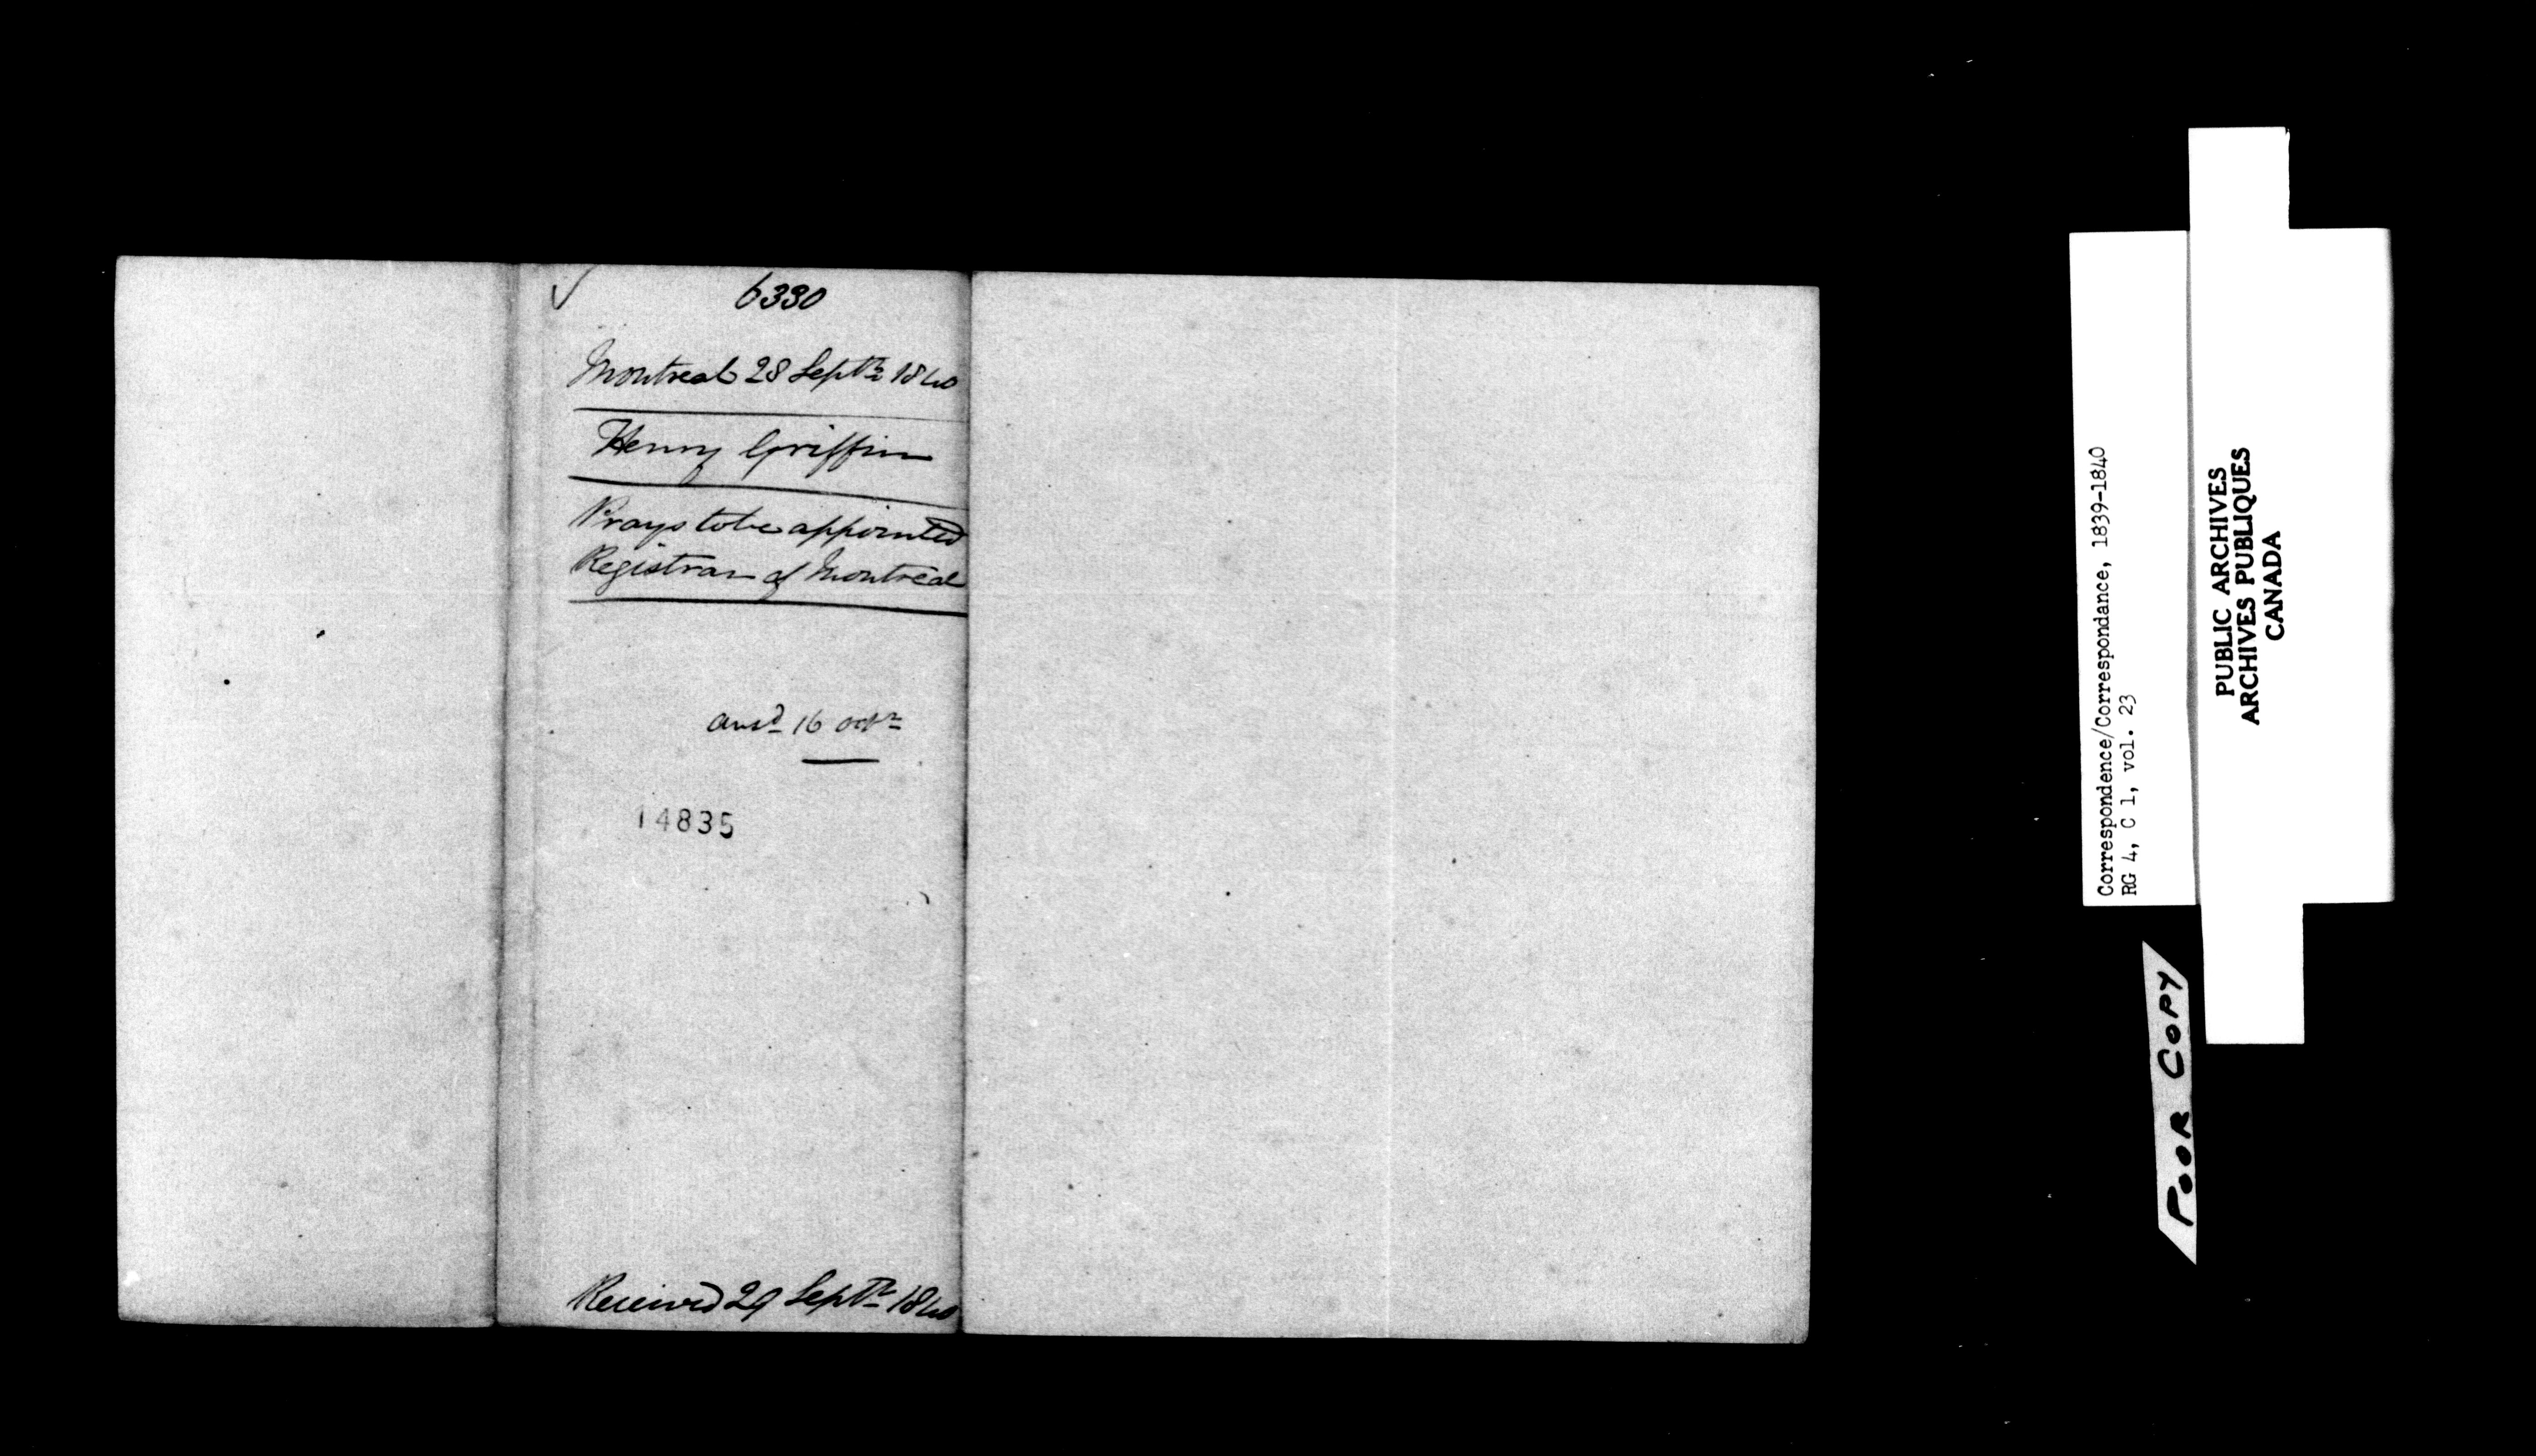 6330
Montreal 28 Septr 1840
Henry Griffin
Prays to be appointed
Registrar of Montreal
ansd 16 octr
14835
Received 29 Septr 1840
Correspondence/Correspondance, 1839-1840
RG 4, C 1, vol. 23
PUBLIC ARCHIVES
ARCHIVES PUBLIQUES
CANADA
POOR COPY